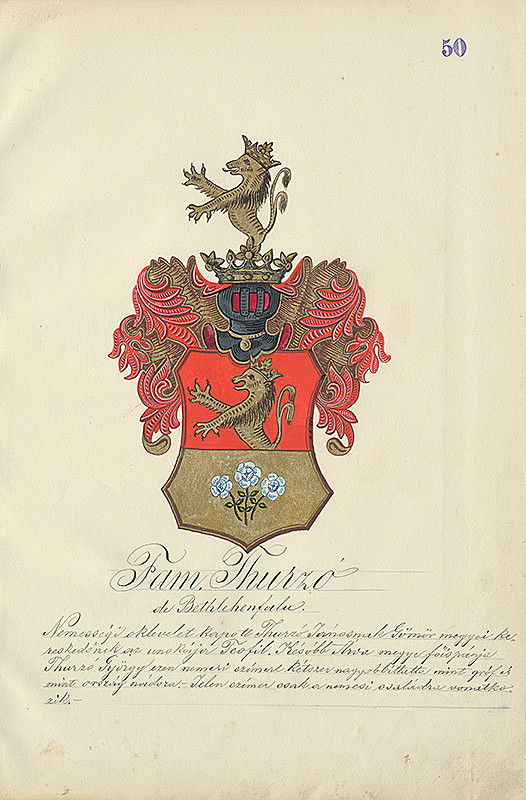 50
Fam. Thurzó
de Bethlehenfalu.
Nemességi oklevelet kapott Thurzó Jánosnak Gömör megyei ke-
reskedőnek az unokája Teofil. Később Árva megye főispánja
Thurzo György ezen nemesi czímert kétszer nagyobbíttatta mint gróf és
mint ország nádora.- Jelen czimer csak a nemesi családra vonatko-
zik.-